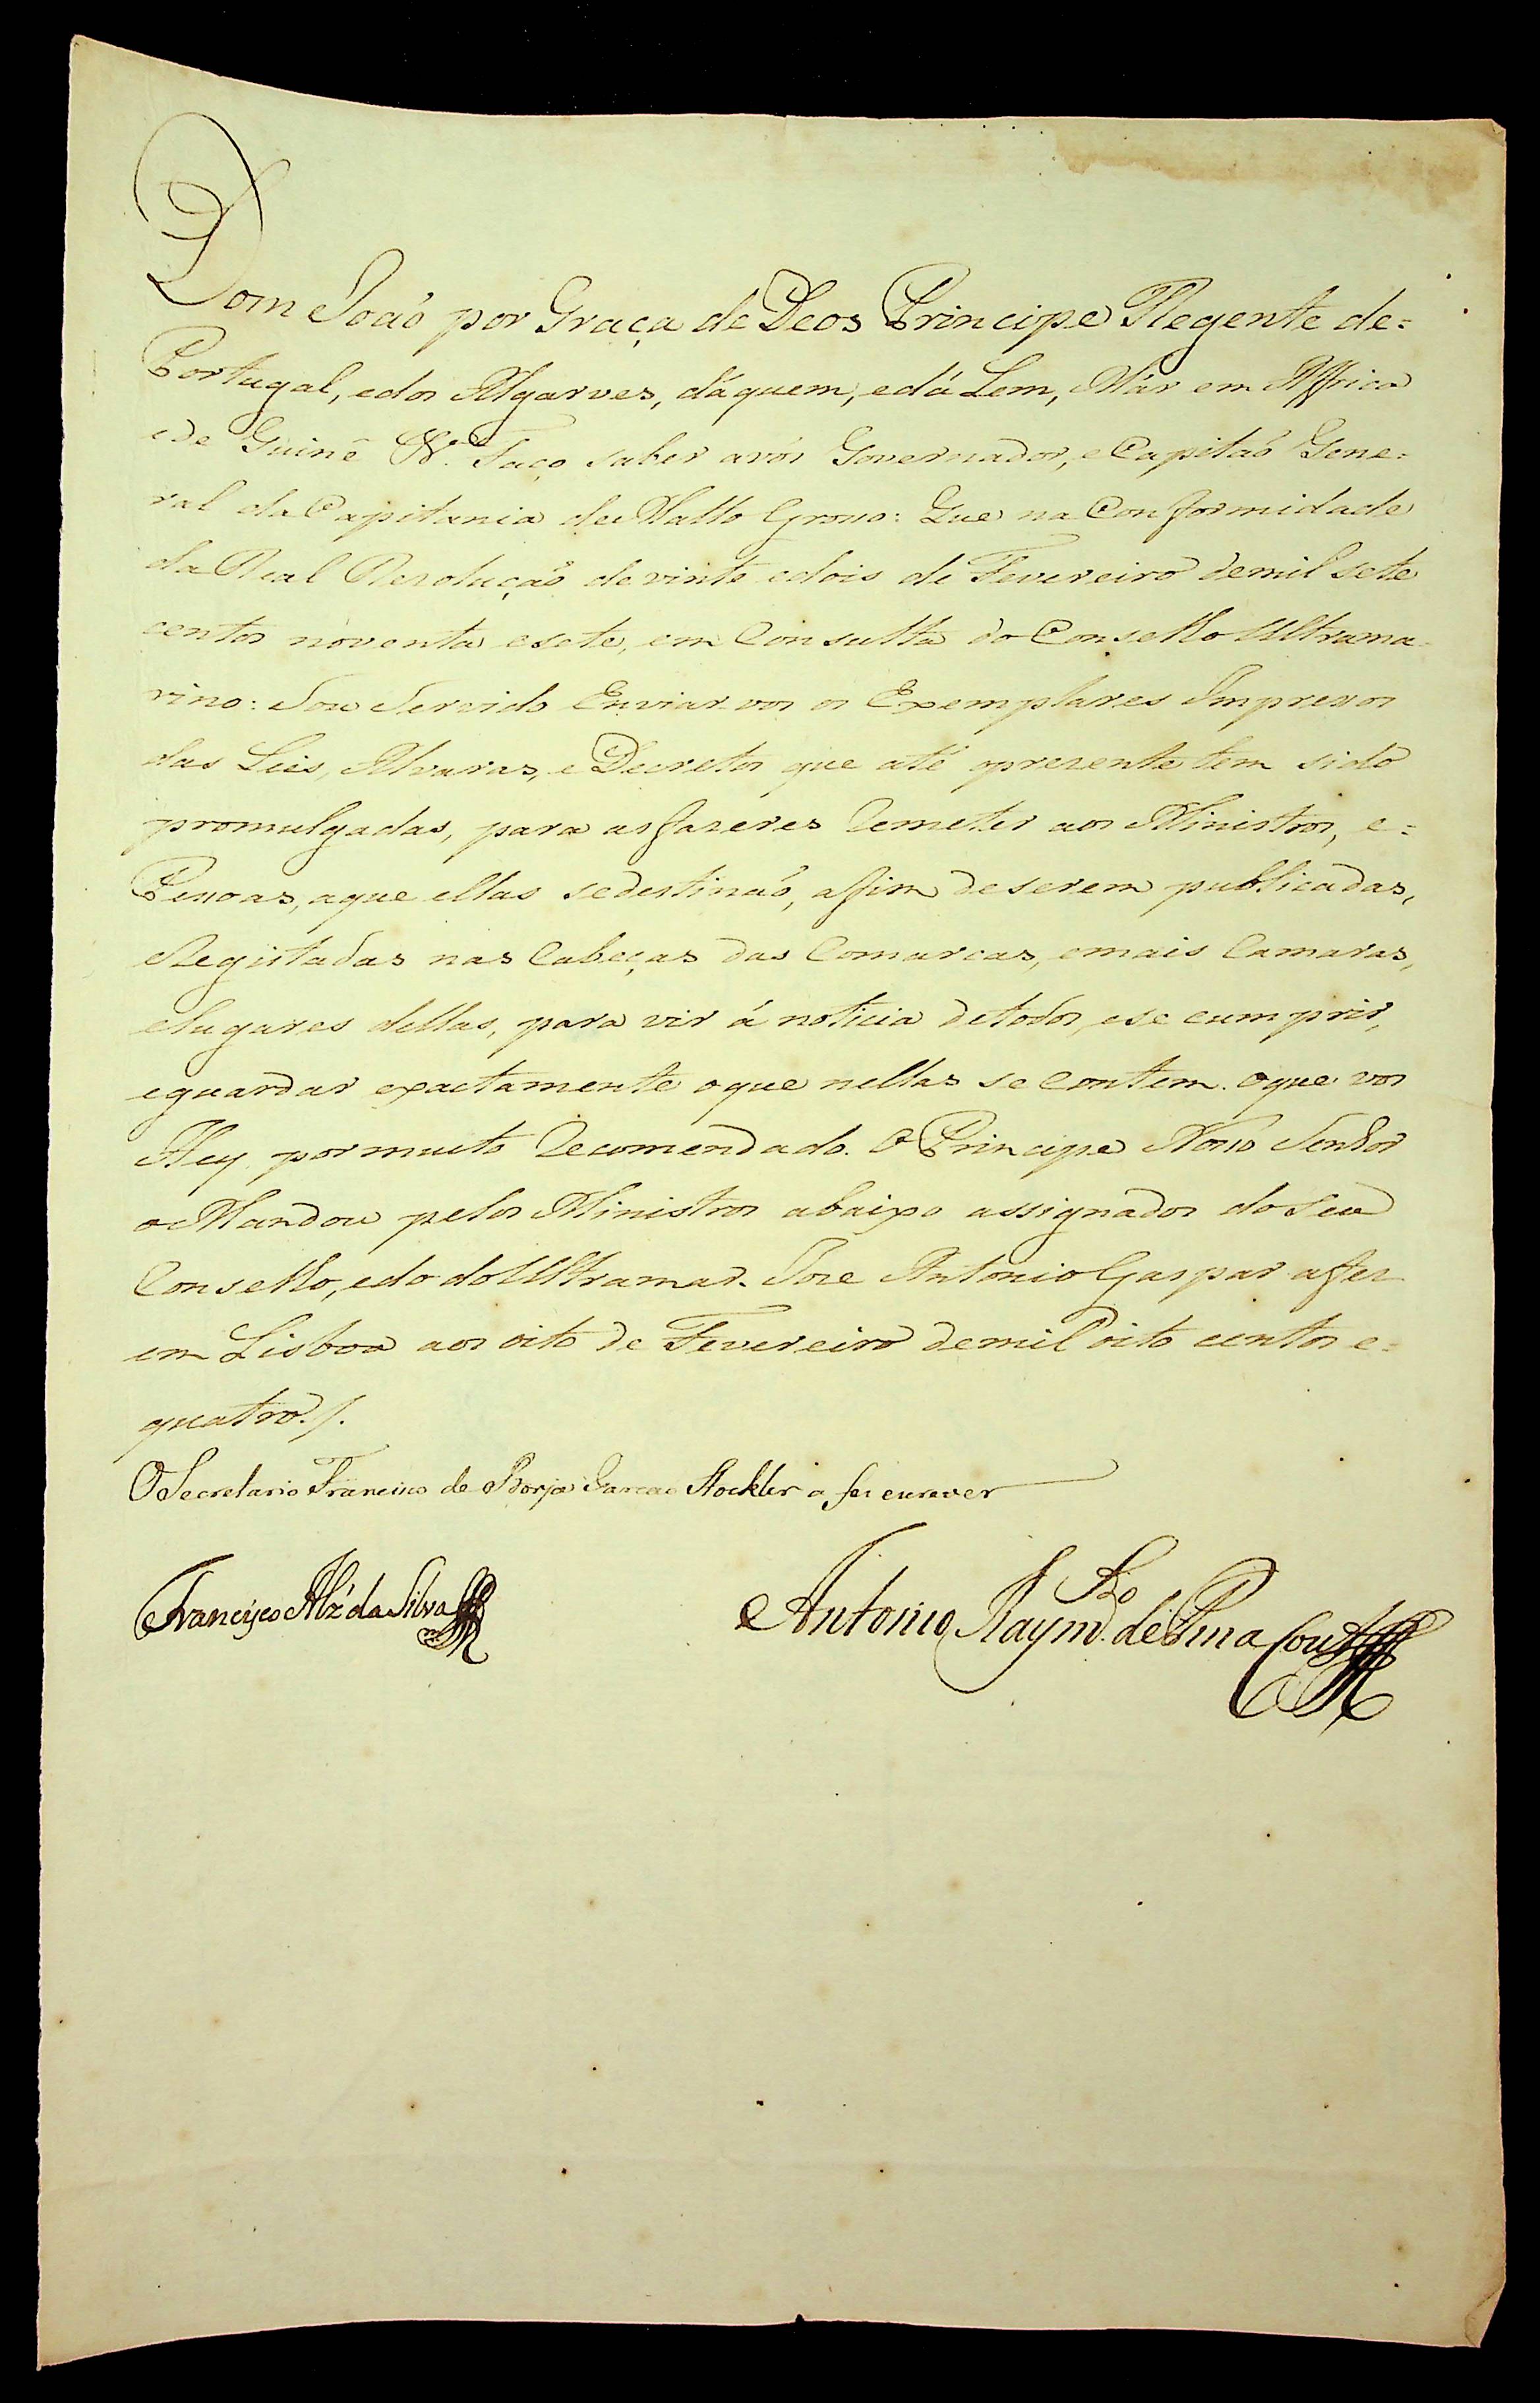 Dom Joaõ por Graça de Deos Principe Regente de=
Portugal, e dos Algarves, dáquem, e dá Lem, Már em Affrica
e de Guiné &ª. Faço saber a vós Governador, e Capitaõ Gene=
ral da Capitania de Matto Grosso: Que na Conformidade
da Real Resoluçaõ de vinte e dois de Fevereiro de mil sete
centos noventa e sete, em Consulta do Conselho Ultrama-
rino: Sou Servido Enviar vos os Exemplares Impressos
das Leis, Alvaras, e Decretos que até o prezente tem sido
promulgadas, para as fazeres Remeter aos Ministros, e=
Pessoas, a que ellas se destinaõ, affim de serem publicadas,
Registadas nas Cabeças das Comarcas, e mais Camaras,
e lugares dellas, para vir á noticia de todos, e se cumprir,
e guardar exactamente o que nellas se contem. o que vos
Hey por muito Recomendado. O Principe Nosso Senhor
o Mandou pelos Ministros abaixo assignados do Seu
Conselho, e do do Ultramar. Joze Antonio Gaspar a fez
em Lisboa aos oito de Fevereiro de mil oito centos e=
quatro./.
O Secretario Francisco de Borja Garcaõ Stockler a fez escrever
Francisco Alz' da Silva
Antonio Raymdo. de Pina Coutº